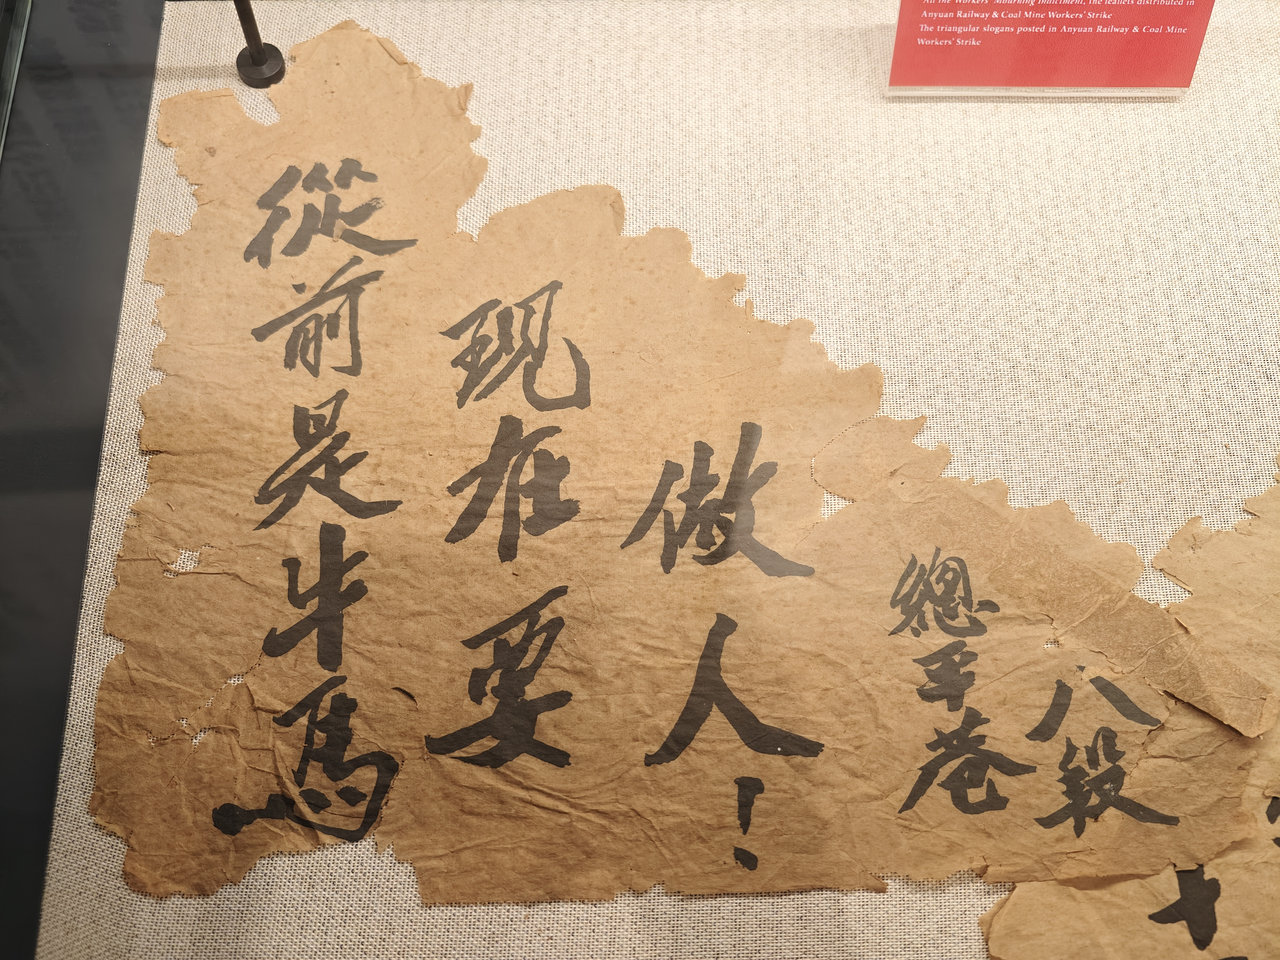 All the Workers' Mourning Indictment, the leaflets distributed in
Anyuan Railway & Coal Mine Workers' Strike
The triangular slogans posted in Anyuan Railway & Coal Mine
Workers' Strike
從前是牛馬
現在要
做人！
總平巷
八段